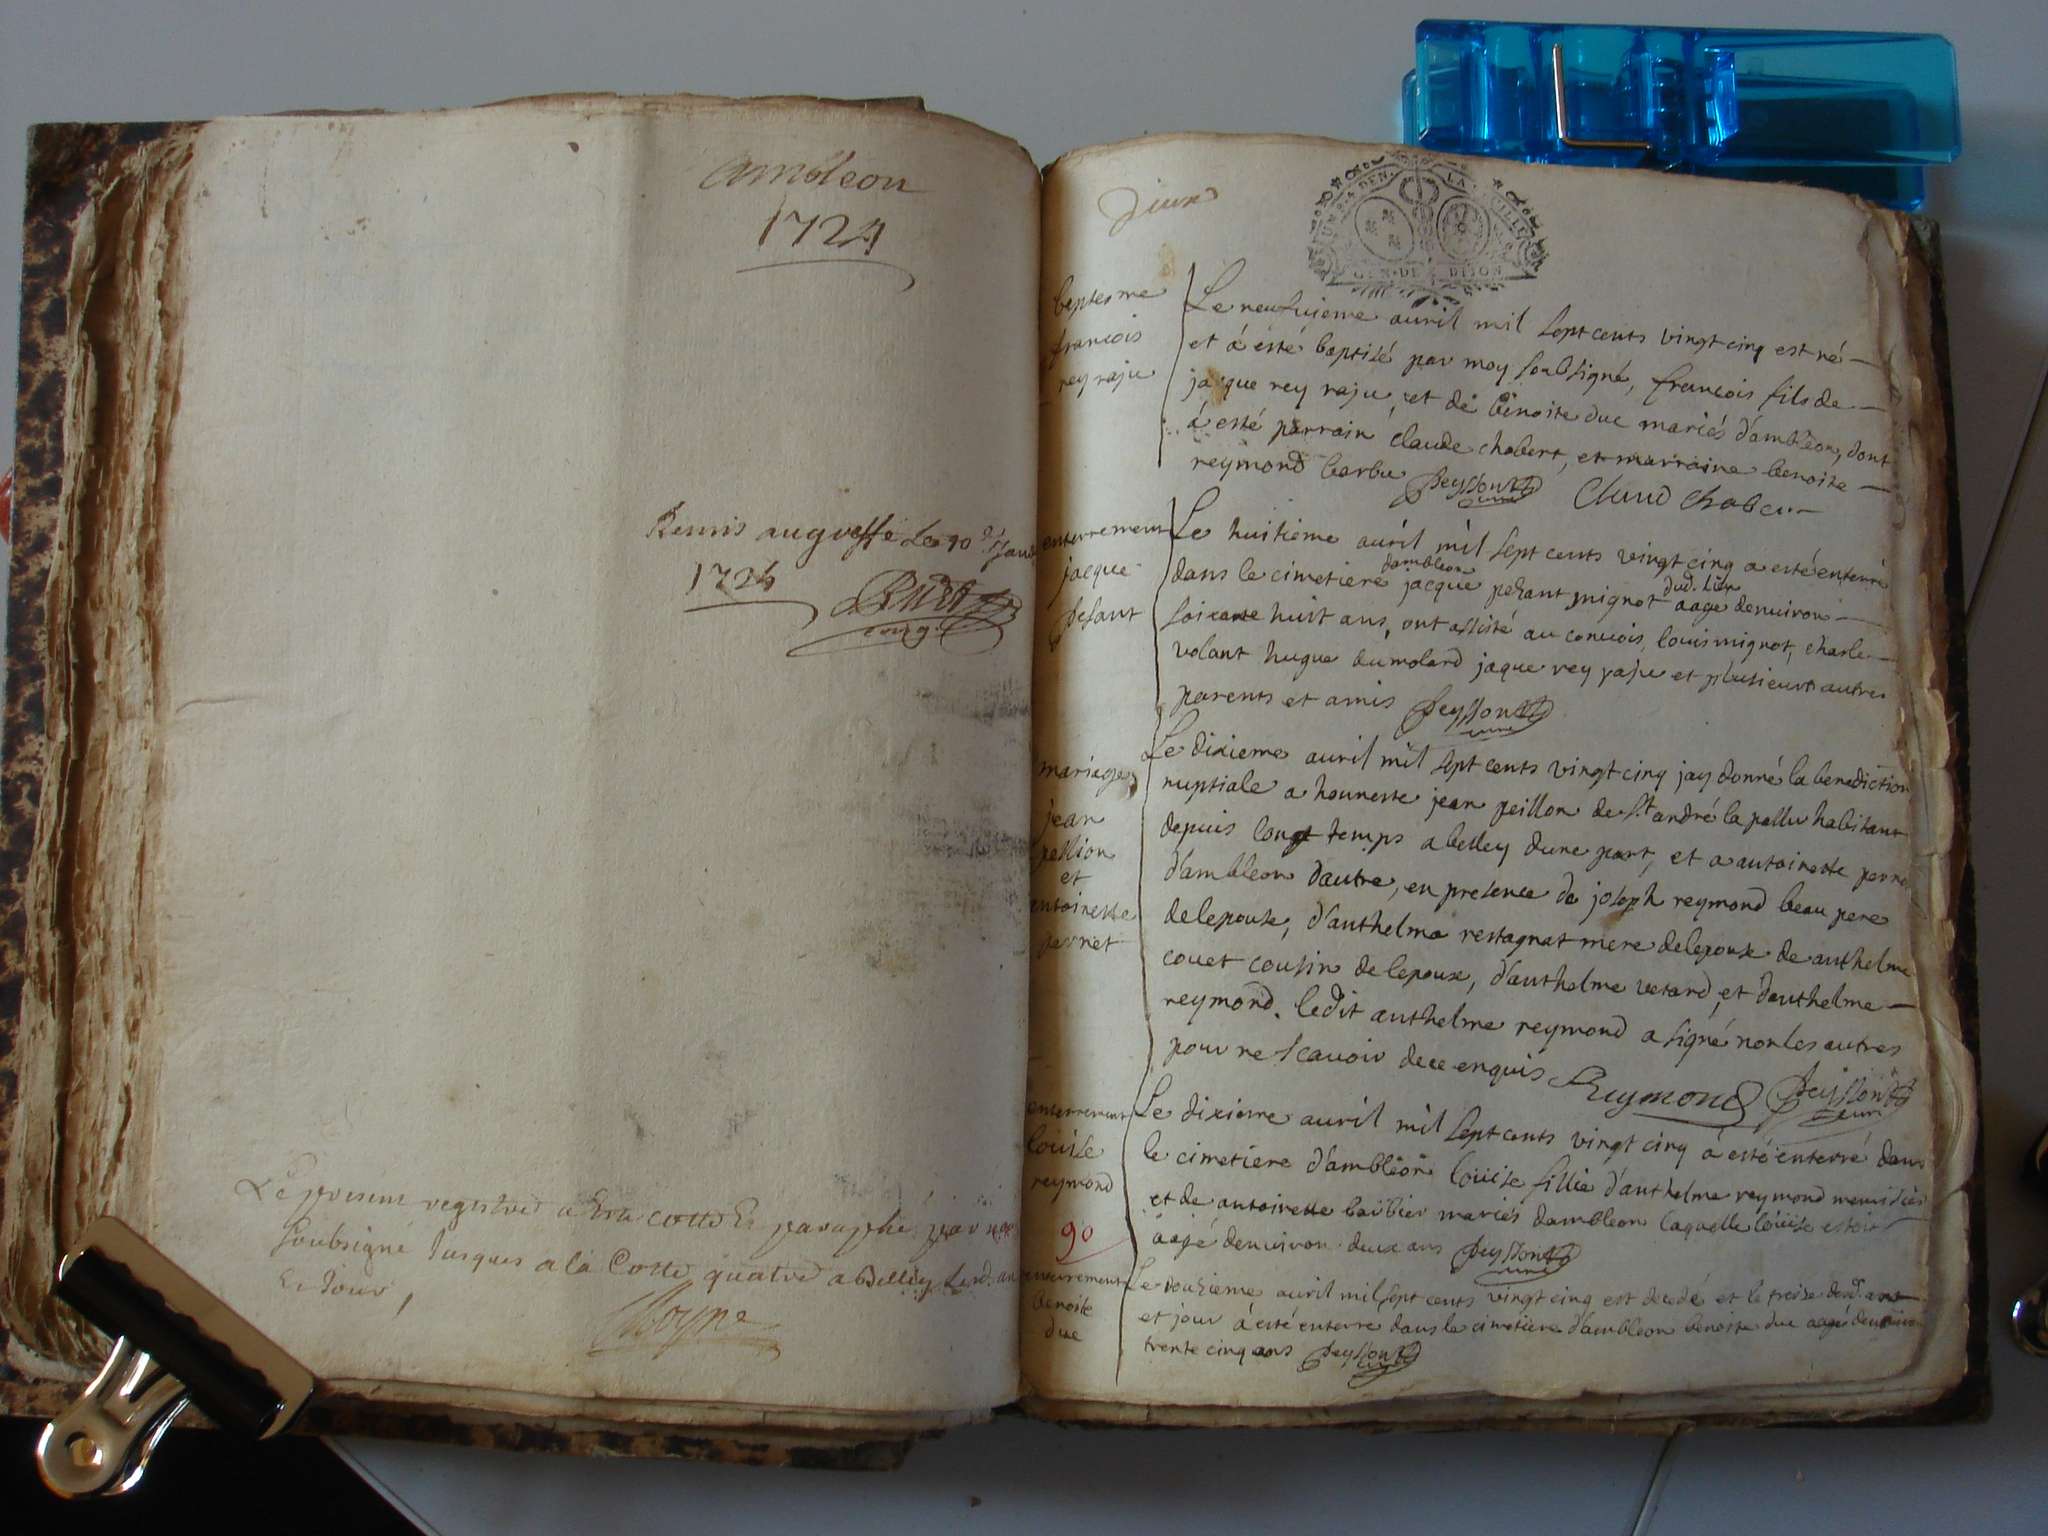 Ambleon
1724
Remis au greffe Le 10e Janv
1724
Le present registre a Esté cotté Et paraphé par nous
soubsigné Jusques a la Cotte quatre a Belley Led. an
Et Jour,
baptesme
francois
rey raju
Le neufuieme auril mil sept cents vingt cinq est né
et á esté baptisé par moy soubsigné, francois fils de
jacque rey raju, et de benoite duc mariés d'ambleon, dont
á esté parrain claude chabert, et marraine benoite
reymond barbu Peysson curé Claud Chaber
enterrement
jacque
pesant
Le huitieme auril mil sept cents vingt cinq a esté enterré
dans le cimetiere dambleon jacque pesant mignot dud. lieu aagé denuiron
soixante huit ans, ont assisté au conuois, louis mignot, charle
volant hugue dumolard jaque rey raju et plusieurs autre
parents et amis Peysson curé
mariage
jean
peillion
et
antoinette
perret
Le dixieme auril mil sept cents vingt cinq jay donné la benediction
nuptiale a honneste jean peillon de St andré la pallu habitant
depuis longt temps a belley dune part, et a antoinette perre
d'ambleon dautre, en presence de joseph reymond beau pere
de lepouse, d'anthelma restagnat mere de lepouse de anthelme
couet cousin de lepoux, d'anthelme vetard, et danthelme
reymond. ledit anthelme reymond a signé non les autres
pour ne scauoir de ce enquis Reymond Peysson curé
enterrement
louise
reymond
90
Le dixieme auril mil sept cents vingt cinq á esté enterré dans
le cimetiere d'ambleon loüise fillie d'anthelme reymond menusier
et de antoinette barbier mariés dambleon laquelle loüise estoit
áagé denuiron deux ans Peysson curé
enterrement
benoite
duc
Le douzieme auril mil sept cents vingt cinq est decedé et le treize desd. ans
et jour á esté enterré dans le cimetiere d'ambleon benoite duc aagé denuiron
trente cinq ans Peysson curé